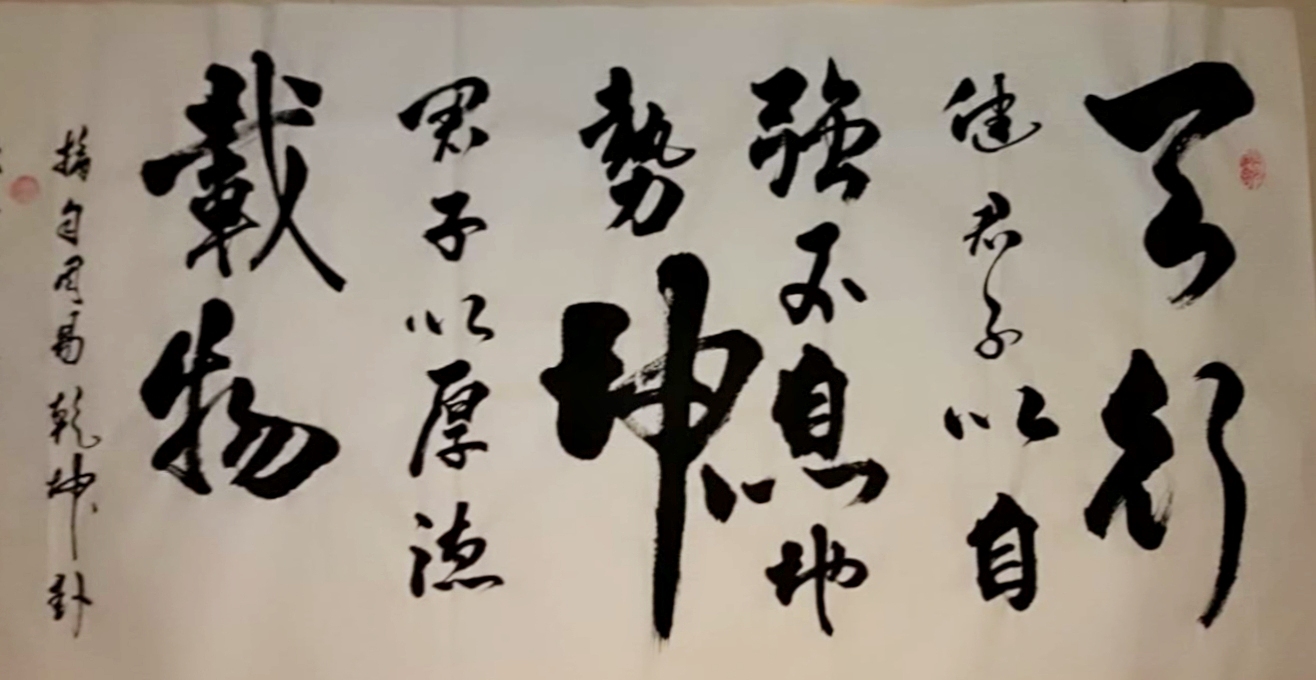 天行
健君子以自
強不息地
勢坤
君子以厚德
載物
摘自周易乾坤卦